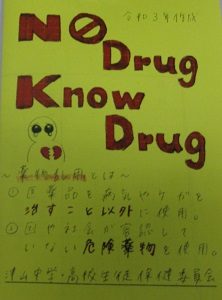 令和3年作成
No Drug
Know
Drug
～薬物乱用とは～
①医薬品を病気やケガを
治すこと以外に使用。
②国や社会が容認して
いない危険薬物を使用。
津山中学・高校生徒保健委員会